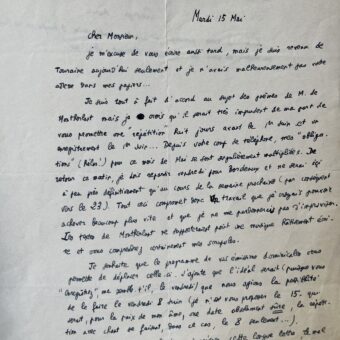 Mardi 15 Mai
Cher Monsieur,
je m'excuse de vous écrire aussi tard, mais je suis revenu de
Touraine aujourd'hui seulement et je n'avais malheureusement pas votre
adresse dans mes papiers...
Je suis tout à fait d'accord au sujet des poèmes de M. de
Montherlant mais je crois qu'il serait très imprudent de ma part de
vous promettre une répétition huit jours avant le 1er Juin est un
enregistrement le 1er Juin... Depuis votre coup de téléphone, mes "obliga-
tions" (hélas!) pour ce mois de Mai se sont singulièrement multipliées. De
retour ce matin, je dois repartir vendredi pour Bordeaux et ne serai ici
à peu près définitivement qu'au cours de la semaine prochaine (par conséquent
vers le 23). Tout ceci comprenant donc un travail que je croyais pouvoir
achever beaucoup plus vite et que je ne me permettrais pas d'improviser.
Les textes de Montherlant ne supportent pas une musique hâtivement écri-
te et vous comprendrez certainement mes scrupules.
Je souhaite que le programme de vos émissions
permette de déplacer celle-ci. J'ajoute que l'idéal serait (puisque vous
"enregistrez" me semble-t'il, le vendredi) que nous ayions la possibilité
de le faire le vendredi 8 Juin (je n'ose vous proposer le 15. qui
serait, pour la paix de mon âme, une date absolument sûre, la répéti-
tion avec chant se faisant, dans ce cas, le 8 seulement...).
cette longue lettre